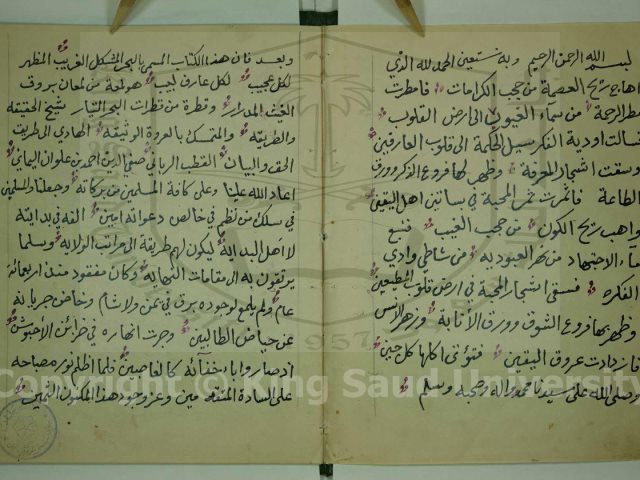 بسم الله الرحمن الرحيم وبه نستعين الحمد لله الذي
اهاج ريح العصمة من حجب الكرامات فامطرت
مطر الرحمة من سماء الغيوب الى ارض القلوب
فسالت اودية الفكر سيل الحكمة الى قلوب العارفين
وسقت اشجار المعرفة وظهر لها فروع الذكر وورق
الطاعة فاثمرت ثمر المحبة في بساتين اهل اليقين
واهب ريح الكون من حجب الغيب فنبع
ماء الاجتهاد من نهر العبودية من شاطي وادي
الفكره فسقى اشجار المحبة في ارض قلوب المطيعين
وظهر بها فروع الشوق وورق الأنابة وزهر الانس
فازدادت عروق اليقين فتؤتى اكلها كل حين
وصلى الله على سيدنا محمد واله وصحبه وسلم
وبعد فان هذا الكتاب المسمى بالبحر المشكل الغريب المظهر
لكل عجيب لكل عارف لبيب هو لمعة من لمعان بروق
الغيث المدرار وقطرة من قطرات البحر التيار شيخ الحقيقه
والطريقه والمتمسك بالعروة الوثيقه الهادي الى طريق
الحق والبيان القطب الرباني صفي الدين احمد بن علوان اليماني
اعاد الله علينا وعلى كافة المسلمين من بركاته وجعلنا والمسلمين
في سلك من نظم في خالص دعواته امين الفه في بدايته
لأهل البداية ليكون لهم طريقة الى مراتب الولايه وسلما
يرتقون به الى مقامات النهايه وكان مفقود منذ اربعمائة
عام ولم يلمع لوجوده برق في يمن ولا شام وخاض جريانه
عن حياض الطالبين وجرت انهاره في خزائن الاحبوش
ادصار واباء خفائه كالغاصبين فلما اظلم نور مصباحه
على السادة المتقدمين وعز وجود هذا المكنون الثمين
Copyright © King Saud University
1957